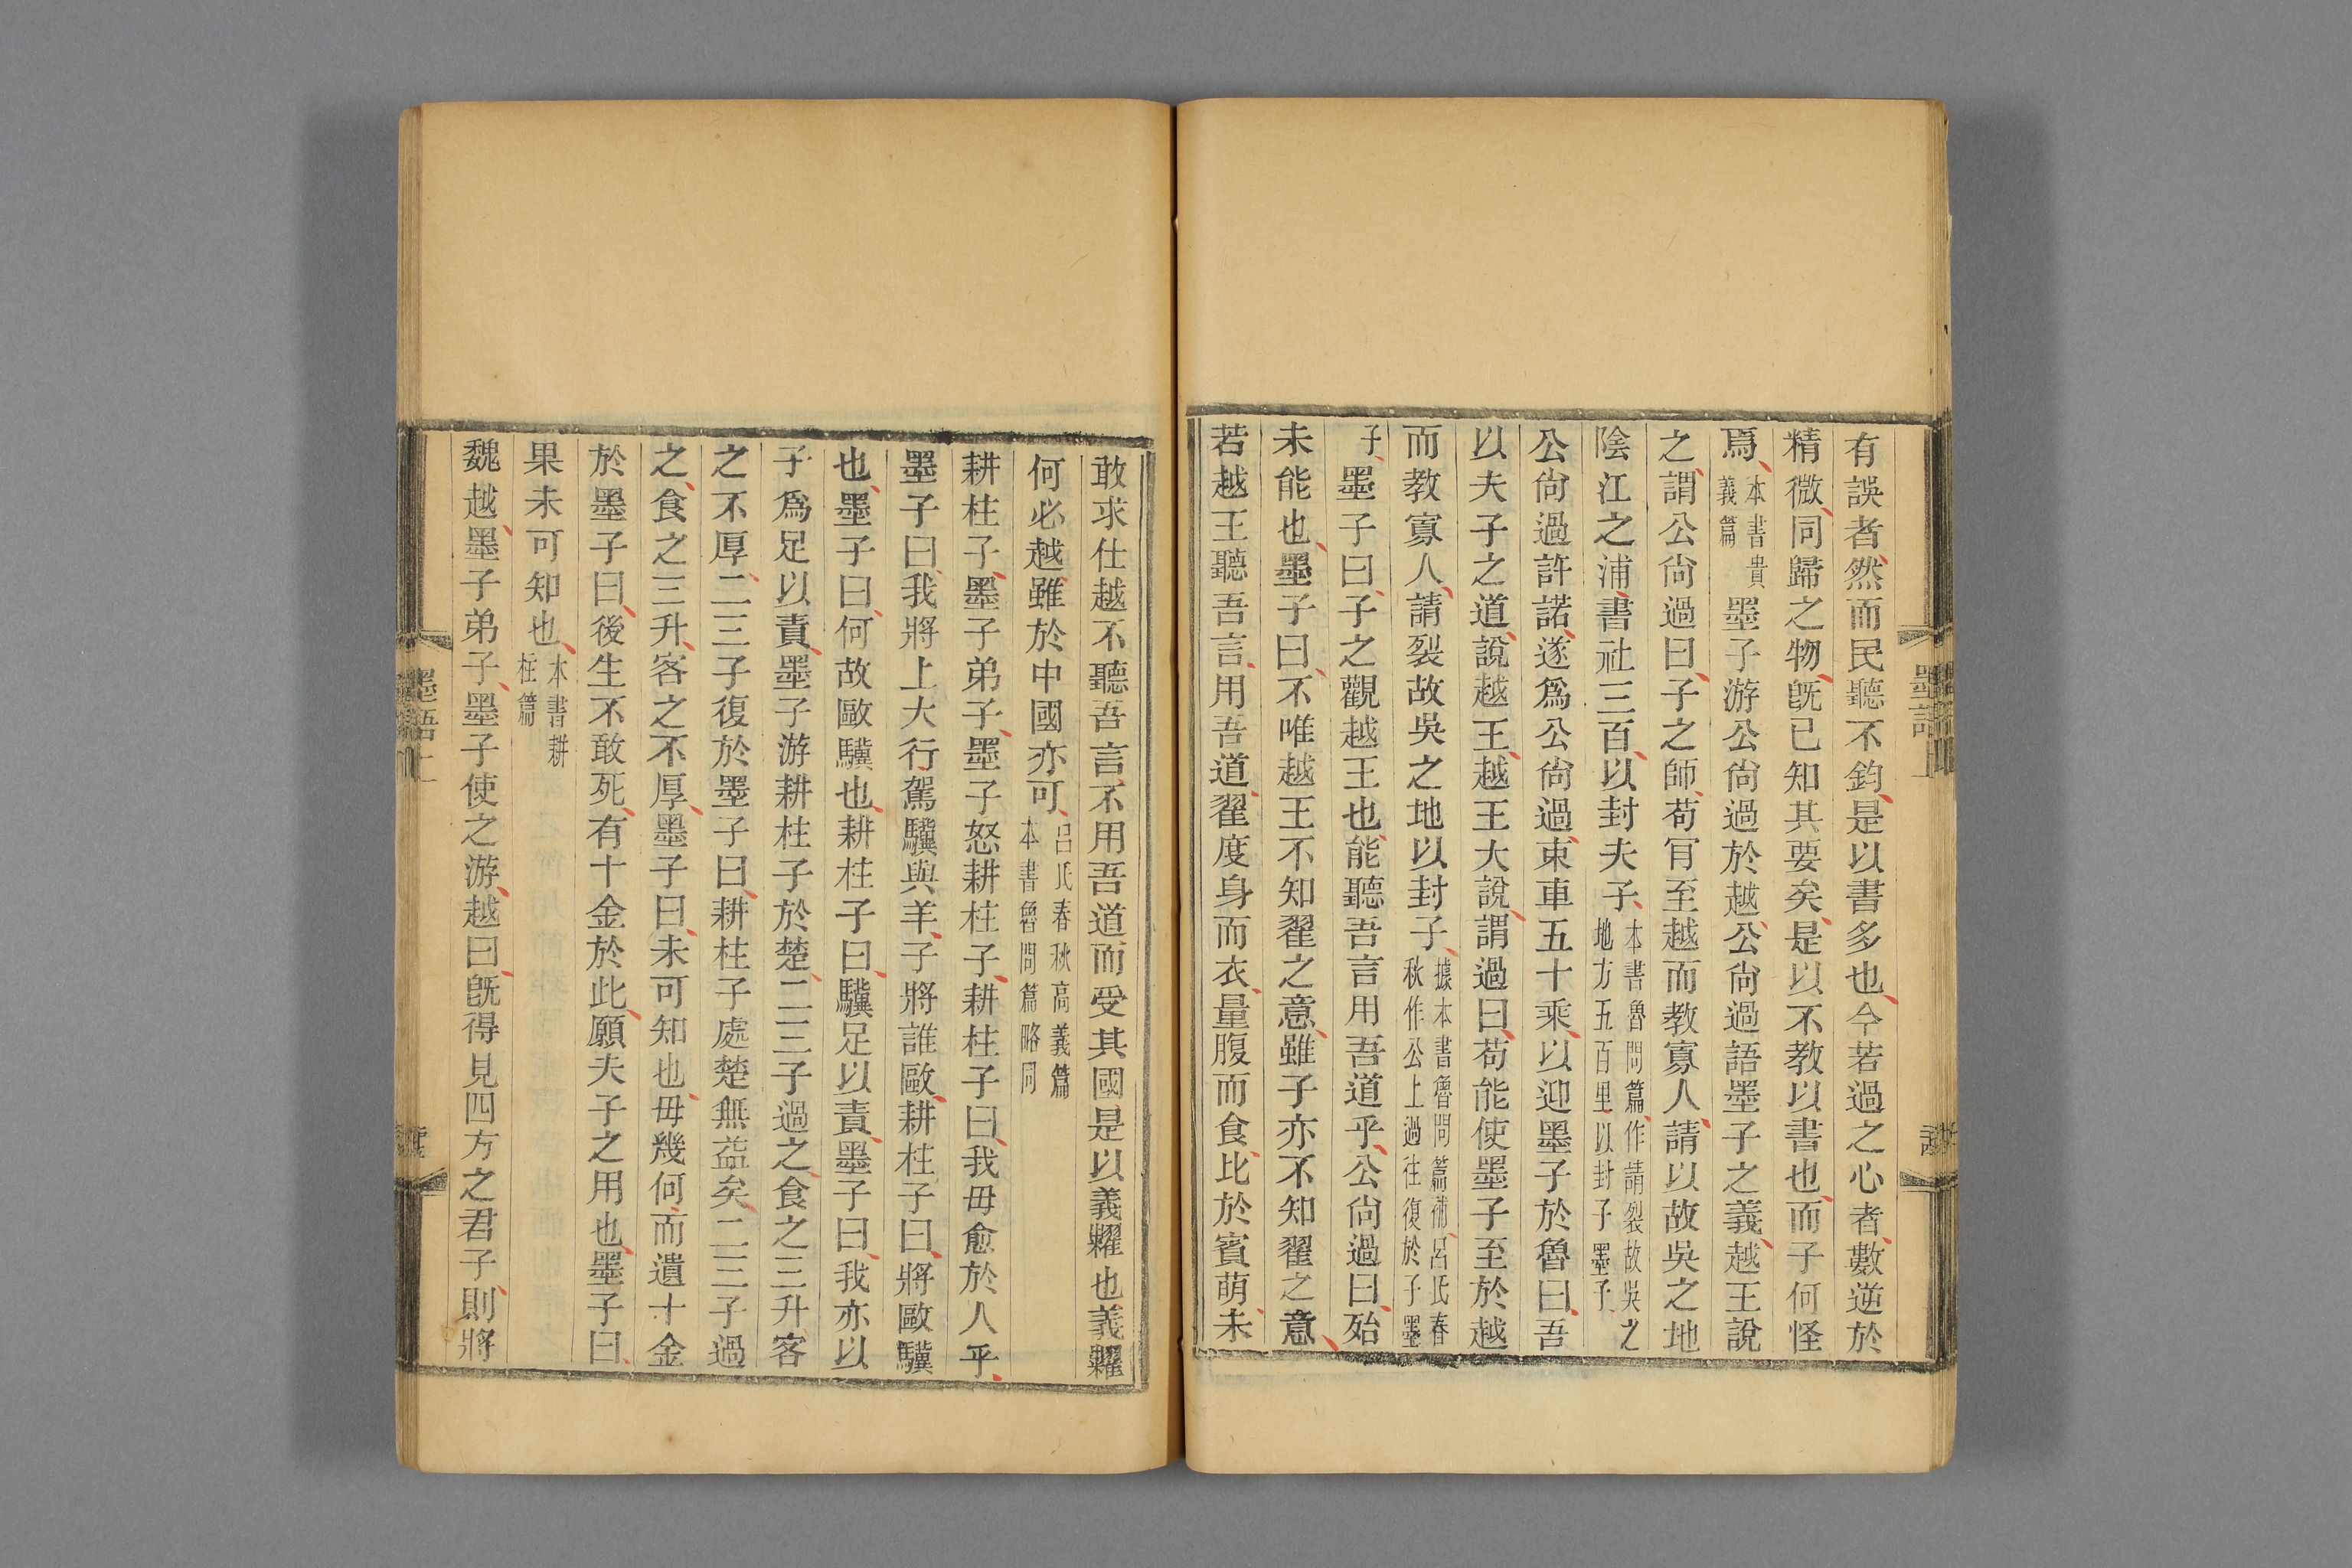 有誤者然而民聽不鈞是以書多也今若過之心者數逆於
精微同歸之物旣已知其要矣是以不教以書也而子何怪
焉本書貴義篇墨子游公尙過於越公尙過語墨子之義越王說
之謂公尙過曰子之師苟肎至越而教寡人請以故吳之地
陰江之浦書社三百以封夫子本書魯問篇作請裂故吳之地方五百里以封子墨子
公尙過許諾遂爲公尙過束車五十乘以迎墨子於魯曰吾
以夫子之道說越王越王大說謂過曰苟能使墨子至於越
而教寡人請裂故吳之地以封子據本書魯問篇補呂氏春秋作公上過往復於子墨
子墨子曰子之觀越王也能聽吾言用吾道乎公尙過曰殆
未能也墨子曰不唯越王不知翟之意雖子亦不知翟之意
若越王聽吾言用吾道翟度身而衣量腹而食比於賓萌未
敢求仕越不聽吾言不用吾道而受其國是以義糶也義糶
何必越雖於中國亦可呂氏春秋高義篇本書魯問篇略同
耕柱子墨子弟子墨子怒耕柱子耕柱子曰我毋愈於人乎
墨子曰我將上大行駕驥與羊子將誰歐耕柱子曰將歐驥
也墨子曰何故歐驥也耕柱子曰驥足以責墨子曰我亦以
子爲足以責墨子游耕柱子於楚二三子過之食之三升客
之不厚二三子復於墨子曰耕柱子處楚無益矣二三子過
之食之三升客之不厚墨子曰未可知也毋幾何而遺十金
於墨子曰後生不敢死有十金於此願夫子之用也墨子曰
果未可知也本書耕柱篇
魏越墨子弟子墨子使之游越曰旣得見四方之君子則將
墨語上